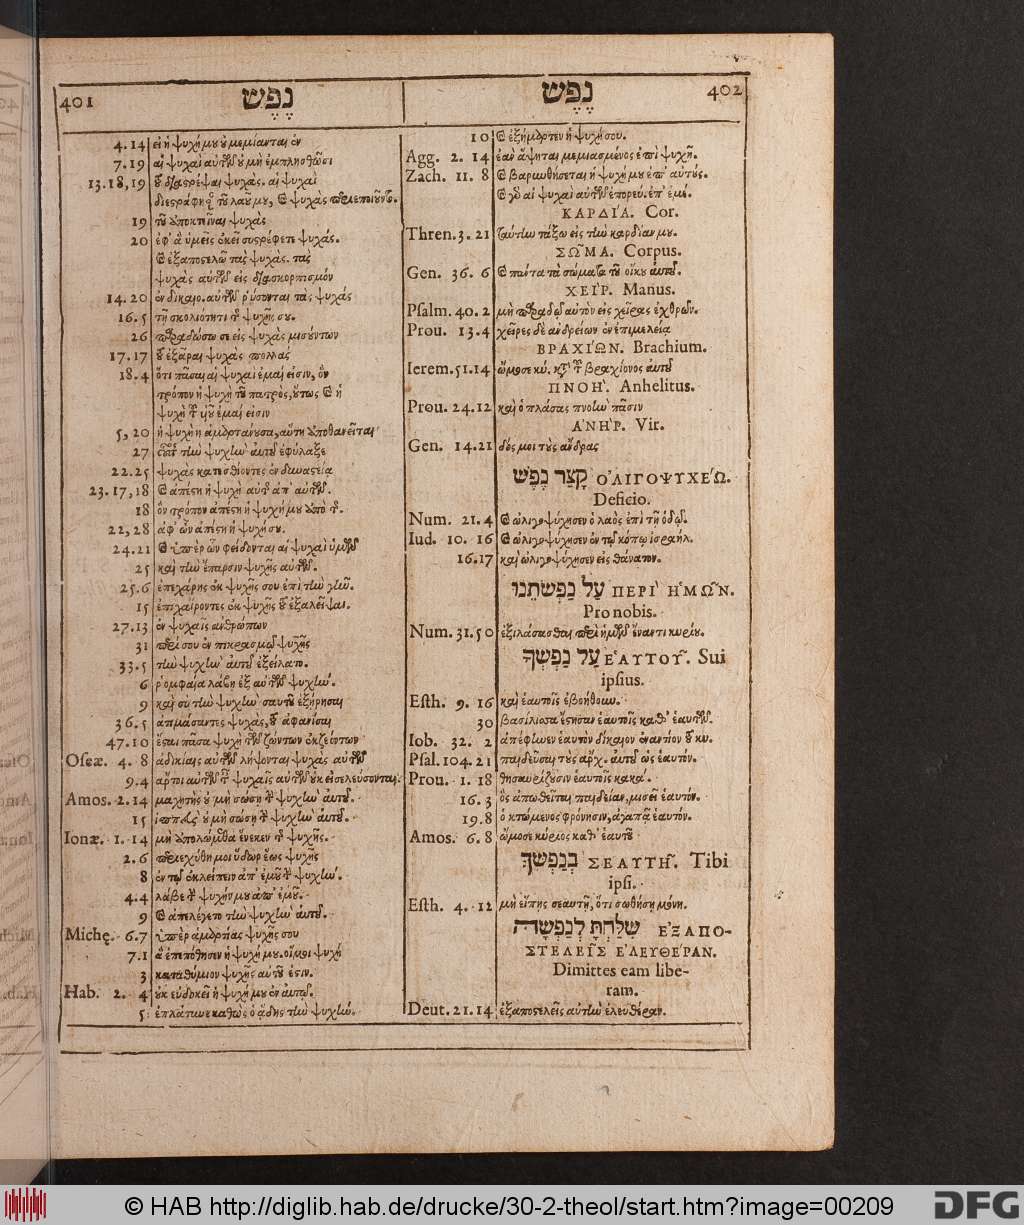 401 נֶפֶש
4.14 εἰ ἡ ψυχή μου οὐ μεμίανται ἐν
7.19 αἱ ψυχαὶ αὐτῶν οὐ μὴ ἐμπλησθῶσι
13.18,19 τοῦ διαστρέψαι ψυχὰς. αἱ ψυχαὶ
διεστράφησαν τοῦ λαοῦ μου, καὶ ψυχὰς περιεποιοῦντο.
19 τοῦ ἀποκτεῖναι ψυχὰς
20 ἐφ' ἃ ὑμεῖς ἐκεῖ συστρέφετε ψυχάς.
καὶ ἐξαποστελῶ τὰς ψυχὰς. τὰς
ψυχὰς αὐτῶν εἰς διασκορπισμόν
14.20 ἐν δικαιο. αὐτῶν ῥύσονται τὰς ψυχάς
16.5 τῇ σκολιότητι τῆς ψυχῆς σου.
26 παραδώσω σε εἰς ψυχὰς μισούντων
17.17 τοῦ ἐξᾶραι ψυχὰς πολλας
18.4 ὅτι πᾶσαι αἱ ψυχαὶ ἐμαί εἰσιν, ὃν
τρόπον ἡ ψυχὴ τοῦ πατρὸς, οὕτως καὶ ἡ
ψυχὴ τοῦ υἱοῦ ἐμαί εἰσιν
5, 20 ἡ ψυχὴ ἡ ἁμαρτάνουσα, αὕτη ἀποθανεῖται
27 οὗτος τὴν ψυχὴν αὐτοῦ ἐφύλαξε
22.25 ψυχὰς κατεσθίοντες ἐν δυναστεία
23.17,18 καὶ ἀπέστη ἡ ψυχὴ αὐτῆς ἀπ' αὐτῶν.
18 ὃν τρόπον ἀπέστη ἡ ψυχή μου ἀπὸ τῆς.
22, 28 ἀφ' ὧν ἀπέστη ἡ ψυχή σου.
24.21 καὶ ὑπὲρ ὧν φείδονται αἱ ψυχαὶ ὑμῶν
25 καὶ τὴν ἔπαρσιν ψυχῆς αὐτῶν.
25.6 ἐπεχάρης ἐκ ψυχῆς σου ἐπὶ τὴν γῆν.
15 ἐπιχαίροντες ἐκ ψυχῆς τοῦ ἐξαλεῖψαι.
27.13 ἐν ψυχαῖς ἀνθρώπων
31 περί σου ἐν πικρασμῷ ψυχῆς
33.5 τὴν ψυχὴν αὐτοῦ ἐξείλατο.
6 ῥομφαία λάβῃ ἐξ αὐτῶν ψυχήν.
9 καὶ σὺ τὴν ψυχὴν σαυτοῦ ἐξῄρησαι
36.5 ἀτιμάσαντες ψυχὰς, τοῦ ἀφανίσαι
47.10 ἔσται πᾶσα ψυχὴ τῶν ζώντων ἐκζεόντων
Oseæ. 4. 8 ἀδικίαις αὐτῶν λήψονται ψυχὰς αὐτῶν
9.4 ἄρτοι αὐτῶν ταῖς ψυχαῖς αὐτῶν οὐκ εἰσελεύσονται.
Amos. 2.14 μαχητὴς οὐ μὴ σώσῃ τὴν ψυχὴν αὐτοῦ.
15 ἱππεὺς οὐ μὴ σώσῃ τὴν ψυχὴν αὐτοῦ.
Ionæ. 1. 14 μὴ ἀπολώμεθα ἕνεκεν τῆς ψυχῆς.
2. 6 περιεχύθη μοι ὕδωρ ἕως ψυχῆς
8 ἐν τῷ ἐκλείπειν ἀπ' ἐμοῦ τὴν ψυχήν.
4.4 λάβε τὴν ψυχήν μου ἀπ' ἐμοῦ.
9 καὶ ἀπελέγετο τὴν ψυχὴν αὐτοῦ.
Michę. 6.7 ὑπὲρ ἁμαρτίας ψυχῆς σου
7.1 ἃ ἐπεπόθησεν ἡ ψυχή μου. οἴμοι ψυχή
3 καταθύμιον ψυχῆς αὐτοῦ ἐστιν.
Hab. 2. 4 οὐκ εὐδοκεῖ ἡ ψυχή μου ἐν αὐτῷ.
5 ἐπλάτυνε καθὼς ὁ ᾅδης τὴν ψυχήν.
נֶפֶש 402
10 καὶ ἐξήμαρτεν ἡ ψυχή σου.
Agg. 2. 14 ἐὰν ἅψηται μεμιασμένος ἐπὶ ψυχῇ.
Zach. 11. 8 καὶ βαρυνθήσεται ἡ ψυχή μου ἐπ' αὐτούς.
καὶ γὰρ αἱ ψυχαὶ αὐτῶν ἐπορεύ. ἐπ' ἐμέ.
ΚΑΡΔΊΑ. Cor.
Thren. 3. 21 ταύτην τάξω εἰς τὴν καρδίαν μου.
ΣΩ͂ΜΑ. Corpus.
Gen. 36. 6 καὶ πάντα τὰ σώματα τοῦ οἴκου αὐτοῦ.
ΧΕΊΡ. Manus.
Psalm. 40. 2 μὴ παραδῷ αὐτὸν εἰς χεῖρας ἐχθρῶν.
Prou. 13.4 χεῖρες δὲ ἀνδρείων ἐν ἐπιμελεία
ΒΡΑΧΊΩΝ. Brachium.
Ierem. 51.14 ὤμοσε κύ. κατὰ τοῦ βραχίονος αὐτοῦ
ΠΝΟΉ. Anhelitus.
Prou. 24.12 καὶ ὁ πλάσας πνοὴν πᾶσιν
ἈΝΉΡ. Vir.
Gen. 14.21 δός μοι τοὺς ἄνδρας
קָצַר נֶפֶש ὈΛΙΓΟΨΥΧΈΩ.
Deficio.
Num. 21. 4 καὶ ὠλιγοψύχησεν ὁ λαὸς ἐπὶ τῇ ὁδῷ.
Iud. 10. 16 καὶ ὠλιγοψύχησεν ἐν τῷ κόπῳ ἰσραήλ.
16.17 καὶ ὠλιγοψύχησεν εἰς θάνατον.
עַל נַפְשֹתֵנוּ ΠΕΡῚ ἩΜΩ͂Ν.
Pro nobis.
Num. 31. 50 ἐξιλάσασθαι περὶ ἡμῶν ἔναντι κυρίου.
עַל נַפְשְךָ ἙΑΥΤΟΥ͂. Sui
ipsius.
Esth. 9. 16 καὶ ἑαυτοῖς ἐβοήθουν.
30 βασίλισσα ἔστησαν ἑαυτοῖς καθ' ἑαυτῶν.
Iob. 32. 2 ἀπέφηνεν ἑαυτὸν δίκαιον ἐναντίον τοῦ κυ.
Psal. 104. 21 παιδεῦσαι τοὺς ἄρχ. αὐτοῦ ὡς ἑαυτόν.
Prou. 1. 18 θησαυρίζουσιν ἑαυτοῖς κακά.
16. 3 ὃς ἀπωθεῖται παιδείαν, μισεῖ ἑαυτόν.
19.8 ὁ κτώμενος φρόνησιν, ἀγαπᾷ ἑαυτόν.
Amos. 6. 8 ὤμοσε κύριος καθ' ἑαυτοῦ
בְנַפְשֵךְ ΣΕΑΥΤΗ͂. Tibi
ipsi.
Esth. 4. 12 μὴ εἴπῃς σεαυτῇ, ὅτι σωθήσῃ μόνη.
שִלַחְתָּ לְנַפְשָה ἘΞΑΠΟ-
ΣΤΕΛΕΙ͂Σ ἘΛΕΥΘΈΡΑΝ.
Dimittes eam libe-
ram.
Deut. 21. 14 ἐξαποστελεῖς αὐτὴν ἐλευθέραν.
© HAB http://diglib.hab.de/drucke/30-2-theol/start.htm?image=00209
DFG